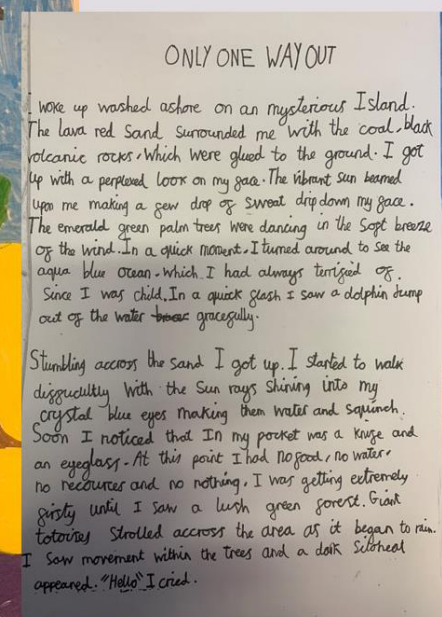 ONLY ONE WAY OUT
I woke up washed ashore on an mysterious Island.
The lava red sand surrounded me with the coal, black
volcanic rocks, which were glued to the ground. I got
up with a perplexed look on my face. The vibrant sun beamed
upon me making a few drop of sweat drip down my face.
The emerald green palm trees were dancing in the soft breeze
of the wind. In a quick moment. I turned around to see the
aqua blue ocean. which I had always terrified of.
Since I was child. In a quick flash I saw a dolphin Jump
out of the water gracefully.
Stumbling accross the sand I got up. I started to walk
difficultly with the sun rays shining into my
crystal blue eyes making them water and squinch.
Soon I noticed that In my pocket was a knife and
an eyeglass. At this point I had no food, no water,
no recources and no nothing. I was getting extremely
firsty until I saw a lush green forest. Giant
totoires strolled accross the area as it began to rain.
I saw movement within the trees and a dark
appeared. "Hello" I cried.